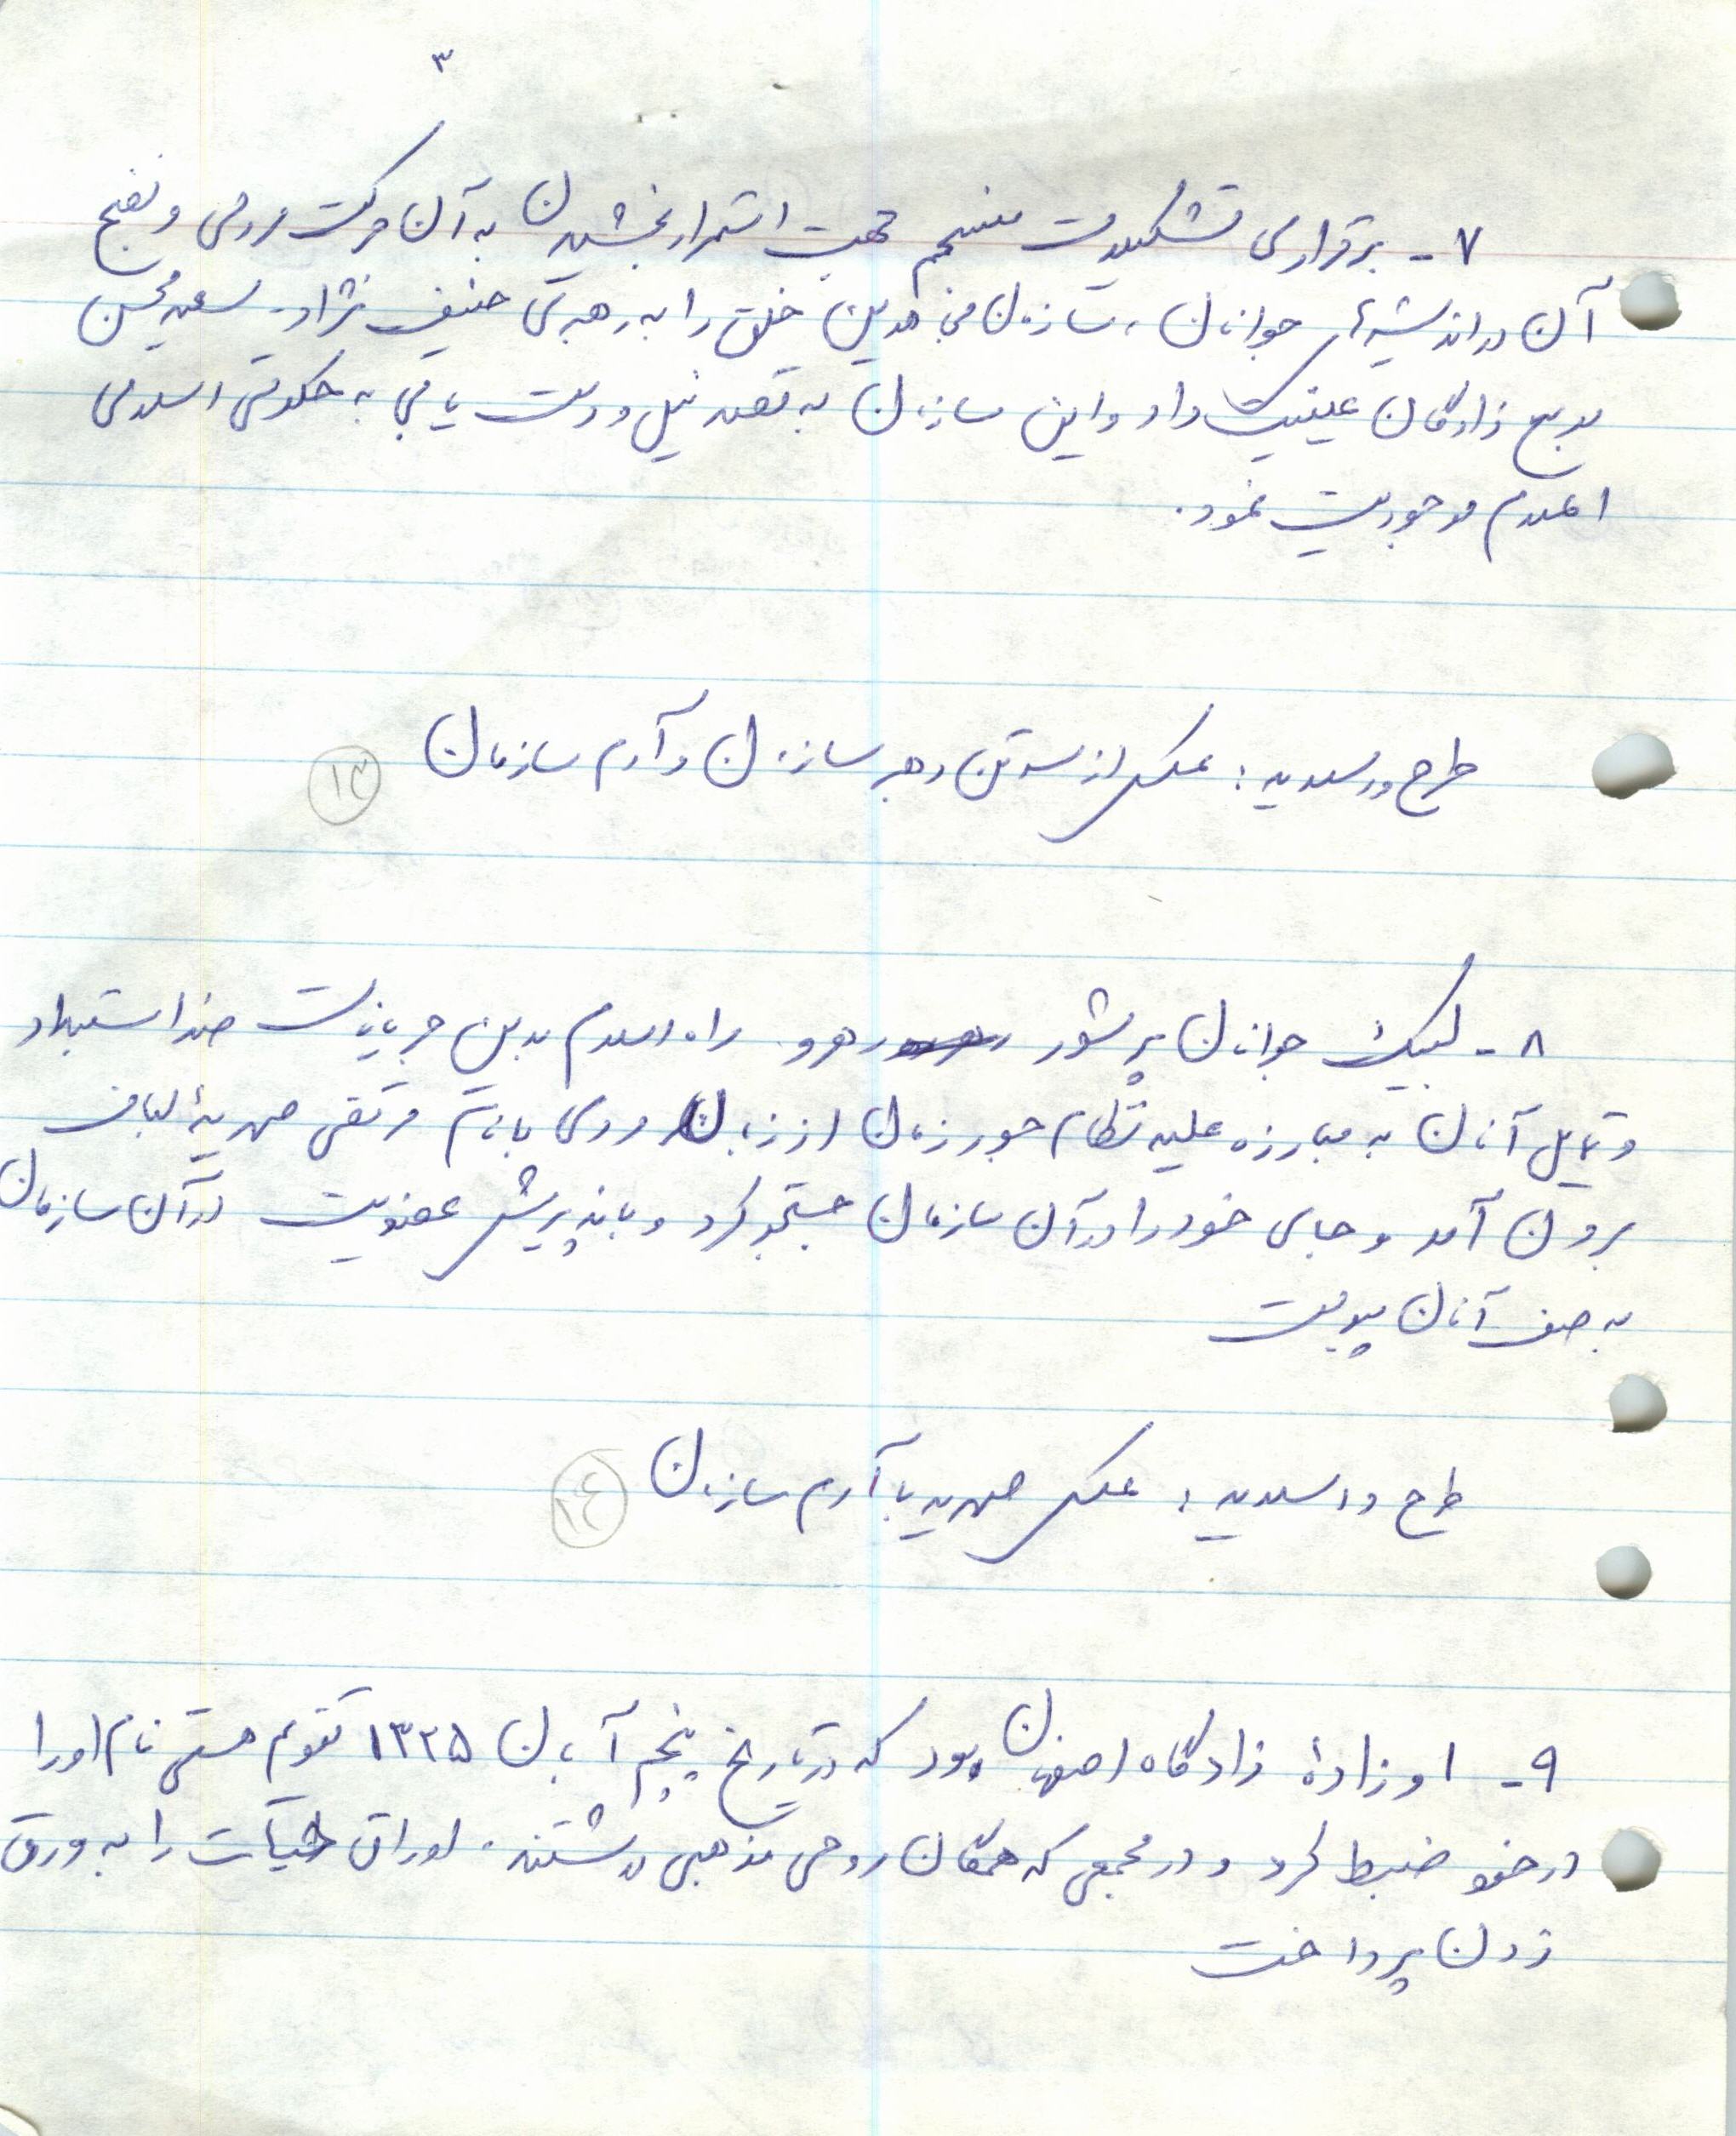 ۳
۷- برقراری تشکیلات منسجم جهت استمرار بخشیدن به آن حرکت مردمی و نضج
آن در اندیشهٔ جوانان، سازمان مجاهدین خلق را به رهبری حنیف نژاد - سعید محسن
بدیع زادگان عینیت داد و این سازمان به قصد نیل و دست یابی به حکومتی اسلامی
اعلام موجودیت نمود.
طرح در اسلاید: عکس از سه تن رهبر سازمان و آرم سازمان ۱۳
۸- لبیک جوانان پرشور رهرو راه اسلام بدین جریانات ضد استبداد
و تمایل آنان به مبارزه علیه نظام جور زمان از زبان مردی بنام مرتضی صمدیهٔ لباف
برون آمد و جای خود را در آن سازمان جستجو کرد و با پذیرش عضویت در آن سازمان
به صف آنان پیوست
طرح در اسلاید: عکس صمدیه با آرم سازمان ۱۴
۹- او زادهٔ زادگاه اصفهان بود که در تاریخ پنجم آبان ۱۳۲۵ تقویم هستی نام او را
در خود ضبط کرد و در مجمعی که همگان روحی مذهبی داشتند. اوراق حیات را به ورق
زدن پرداخت